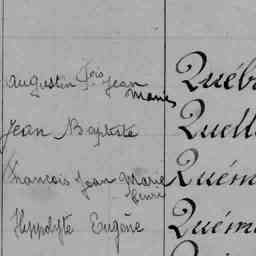 Augustin Fois Jean Marie Québ
Jean Baptiste Quell
François Jean Marie Henri Quém
Hippolyte Eugène Quém